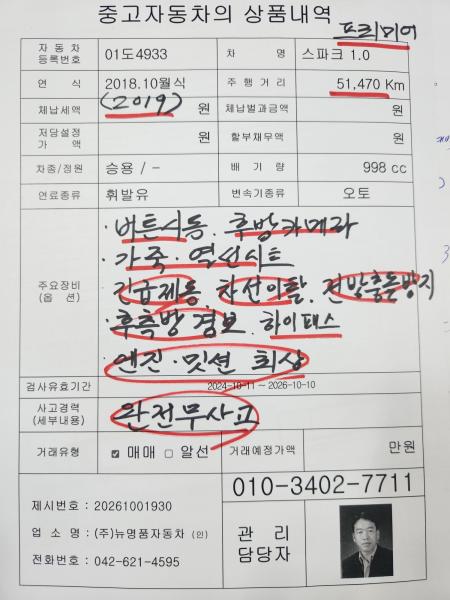 중고자동차의 상품내역
프리미어
자동차 등록번호 01도4933 차 명 스파크 1.0
연 식 2018.10월식 주행거리 51,470 Km
체납세액 (2019) 원 체납벌과금액 원
저당설정 가 액 원 할부채무액 원
차종/정원 승용 / - 배 기 량 998 cc
연료종류 휘발유 변속기종류 오토
주요장비 (옵 션)
· 버튼시동. 후방카메라
· 가죽 · 열선시트
긴급제동, 차선이탈, 전방충돌방지
· 후측방 경보. 하이패스
엔진 · 밋션 최상
검사유효기간 2024-10-11 ~ 2026-10-10
사고경력 (세부내용) 완전무사고
거래유형 ☑ 매매 ☐ 알선 거래예정가액 만원
010-3402-7711
제시번호 : 20261001930
업 소 명 : (주)뉴명품자동차 (인)
전화번호 : 042-621-4595
관 리
담당자